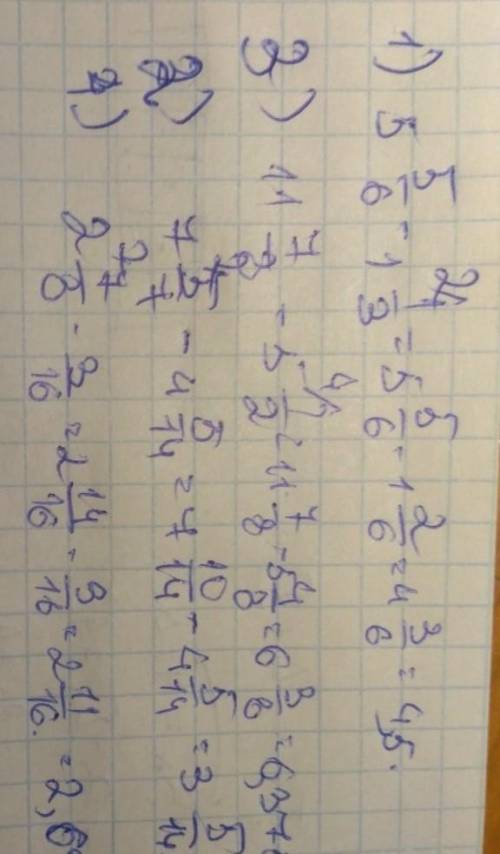 1) 5 5/6 - 1 1/3 = 5 5/6 - 1 2/6 = 4 3/6 = 4,5.
3) 11 7/8 - 5 1/2 = 11 7/8 - 5 4/8 = 6 3/8 = 6,37
2) 7 5/7 - 4 5/14 = 7 10/14 - 4 5/14 = 3 5/14
4) 2 7/8 - 3/16 = 2 14/16 - 3/16 = 2 11/16. = 2,6